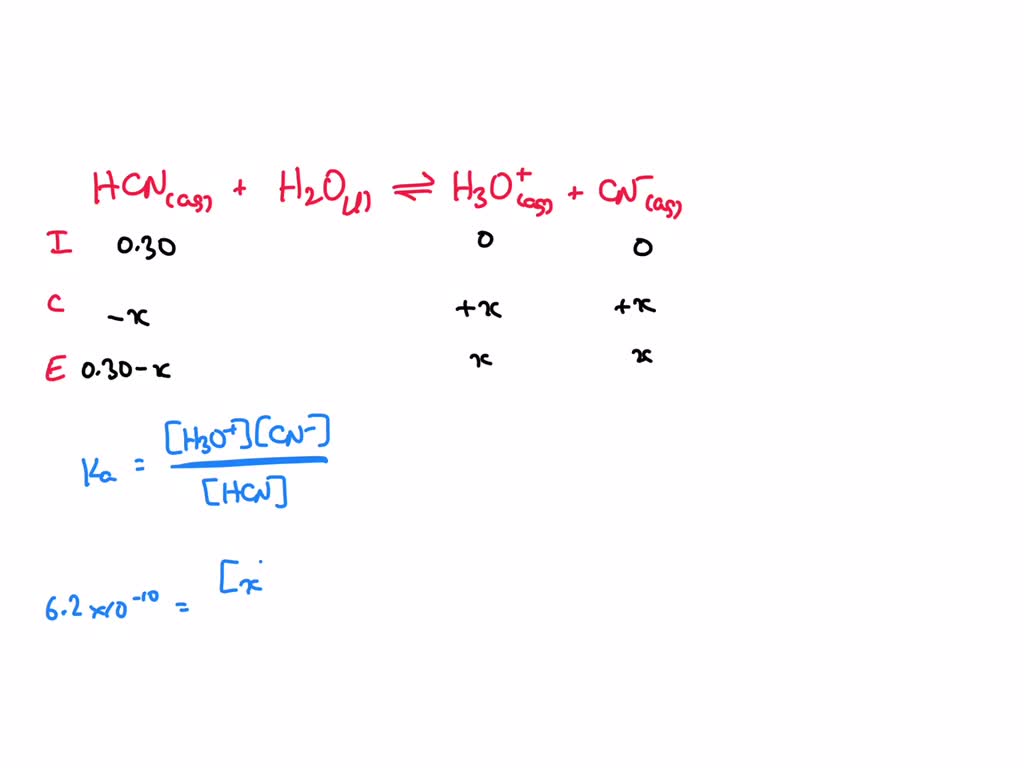 HCN(aq) + H2O(l) ⇌ H3O+(aq) + CN-(aq)
I 0.30 0 0
C -x +x +x
E 0.30-x x x
Ka = [H3O+][CN-] / [HCN]
6.2 x10^-10 = [x